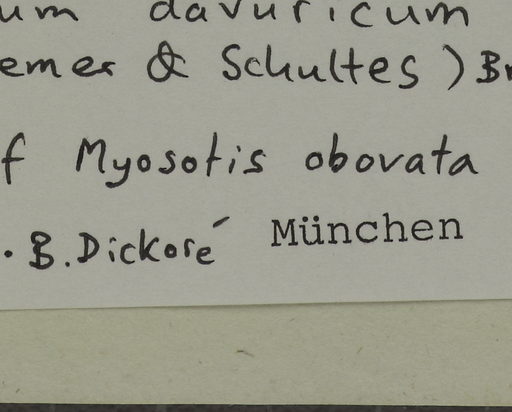 um davuricum
emer & Schultes) Br
f Myosotis obovata
. B. Dickoré München